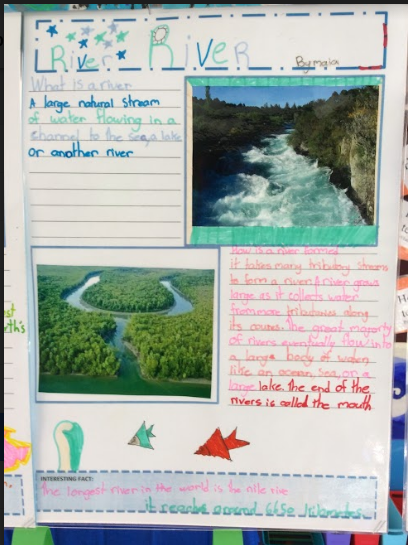 River River
By maia
What is a river
A large natural stream
of water flowing in a
channel to the sea, a lake
or another river
How is a river formed
it takes many tributary streams
to form a river. A river grows
large as it collects water
from more tributaries along
its course. The great majority
of rivers eventually flow into
a large body of water
like an ocean, sea, or a
large lake. the end of the
rivers is called the mouth.
INTERESTING FACT:
The longest river in the world is the nile rive
it reachs around 6650 kilometres